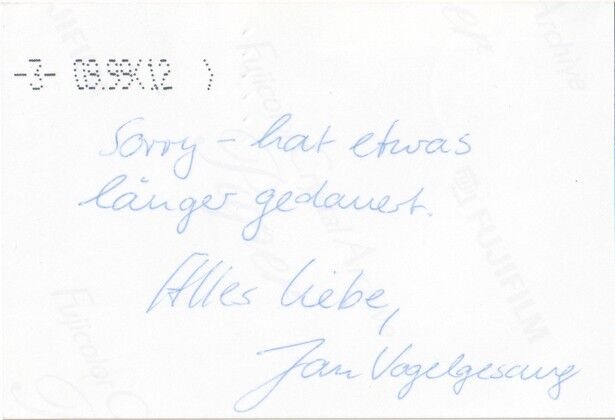 -3- 08.99(12 )
Sorry – hat etwas
länger gedauert.
Alles Liebe,
Jan Vogelgesang
FUJIFILM
Fujicolor
Archive